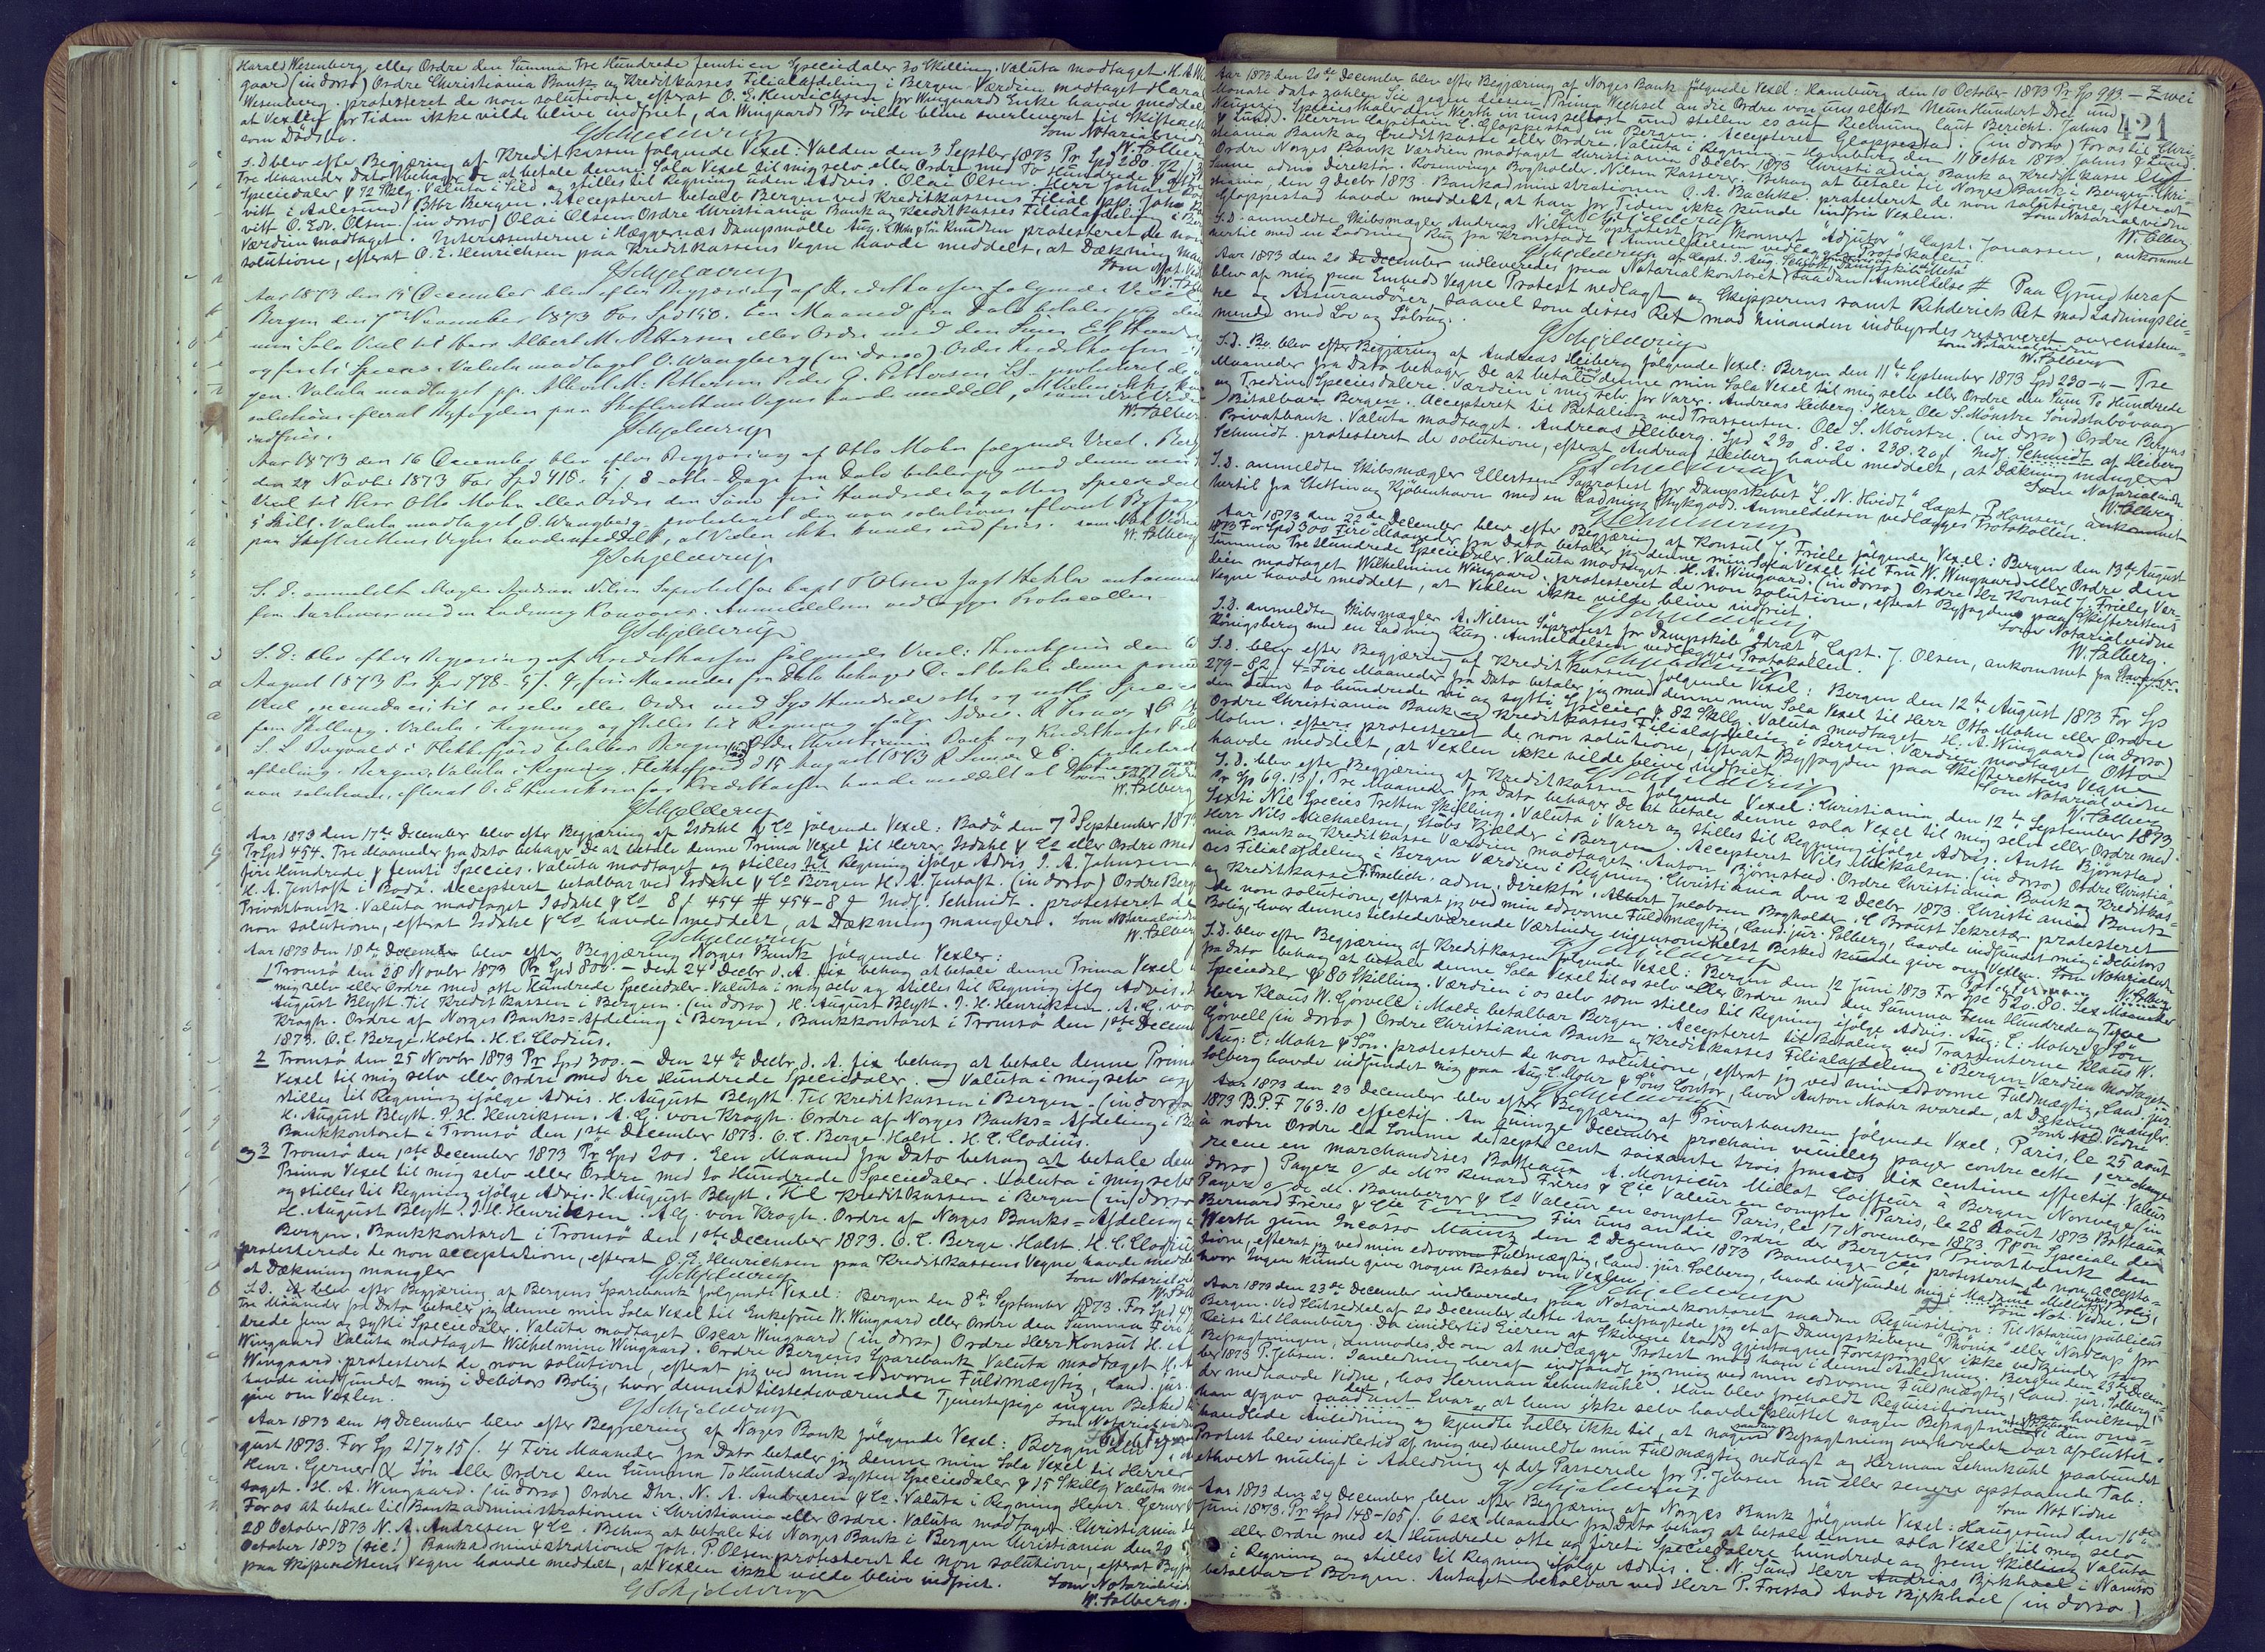 Harald Wesenberg eller Ordre den Summa Tre Hundrede femti en Speciedaler 30 Skilling. Valuta modtaget. H. A. Win
gaard (in dorso) Ordre Christiania Bank og Kreditkasses Filialafdeling i Bergen. Værdien modtaget Hara
Wesenberg. protesteret de non solutione, efterat O. E. Henrichsen for Wingaards Enke havde meddel
at Vexlen for Tiden ikke vilde blive indfriet, da Wingaards Bo vilde blive overleveret til Skifteret
som Dödsbo.
Som Notarialvidn
GSchjelderup
W. Solberg
S. D blev efter Begjæring af Kreditkassen følgende Vexel: Volden den 3 Septbr 1873 Pr Spd 280. 72
Tre Maaneder Dato behager De at betale denne Sola Vexel til mig selv eller Ordre med To Hundrede & otti
Speciedaler & 72 Skllg. Valuta i Sild og stilles til Regning uden Advis. Olai Olsen. Herr Johan
vitt i Aalesund Btbr Bergen. Accepteret betalb Bergen ved Kreditkassens Filial pp. John
vitt O. Edv. Olsen. (in dorso) Olai Olsen Ordre Christiania Bank og Kreditkasses Filialafdeling i Ber
Værdien modtaget. Interessenterne i Hæggernæs Dampmølle Aug. C. Mohr & Sön Knudsen protesteret de non
solutione, efterat O. E. Henrichsen paa Kreditkassens Vegne havde meddelt, at Dækning man
Som Not. Vid
GSchjelderup
W. Solb
Aar 1873 den 15 December blev efter Begjæring af Kreditkassen følgende Vexel
Bergen den 7de November 1873 For Spd 150. Een Maaned fra Dato betaler jeg den
min Sola Vexel til Herr Albert M. Pettersen eller Ordre med den Sum Eet Hund
og firti Species. Valuta modtaget O. Waagberg (in dorso) Ordre Kreditkassen
gen. Valuta modtaget pp. Albert M. Pettersen Peder G. Pettersen protesteret de
solutione efterat Byfogden paa Skifterettens Vegne havde meddelt, at Vexlen ikke kun
indfries.
som Not Vidn
W. Solber
GSchjelderup
Aar 1873 den 16 December blev efter Begjæring af Otto Mohn følgende Vexel. Berg
den 24 Novbr 1873 For Spd 418. 5 / 8 - otte - Dage fra Dato betaler jeg mod denne min
Vexel til Herr Otto Mohn eller Ordre den Sum fire Hundrede og atten Speciedal
5 Skill. Valuta modtaget O. Waagberg protesteret de non solutione efterat Byfogd
paa Skifterettens Vegne havde meddelt, at Vexlen ikke kunde indfries. som Not. Vidne
W. Solberg
GSchjelderup
S. D. anmeldt Mægler Andreas Nilsen Søprotest for Capt T Olsen Jagt Hekla ankomme
fra Aarhuus med en Ladning Kornvarer. Anmeldelsen vedlægges Protocollen
GSchjelderup
S. D. blev efter Begjæring af Kreditkassen følgende Vexel:
August 1873 Pr Spd 798 - 5/. 4 fire Maaneder fra Dato behager De at betale denne prima
Vexel til os selv eller Ordre med Syv Hundrede otte og nitti Specie
fem Skilling. Valuta i Regning og stilles til Regning ifølge Advis.
S. L. Rogvald i Flekkefjord betalbar Bergen (in dorso) Ordre Christiania Bank og Kreditkasses Fil
afdeling. Bergen. Valuta i Regning. Flekkefjord d 15 August 1873
non solutione, efterat O. E. Henrichsen for Kreditkassen havde meddelt at Dækning man
Som Not. Vidn
W. Solberg
GSchjelderup
Aar 1873 den 17de December blev efter Begjæring af Isdahl & Co følgende Vexel: Bodö den 7d September 187
Pr Spd 454. Tre Maaneder fra Dato behager De at betale denne Prima Vexel til Herrer Isdahl & Co eller Ordre med
fire Hundrede & femti Species. Valuta modtaget og stilles til Regning ifølge Advis. I. A. Johnsen
H. A. Jentoft i Bodö. Accepteret betalbar ved Isdahl & Co Bergen H. A. Jentoft. (in dorso) Ordre Berg
Privatbank. Valuta modtaget Isdahl & Co 8/ 454 # 454-8/ Indf. Schmidt. protesteret de
non solutione, efterat Isdahl & Co havde meddelt, at Dækning manglede. Som Notarialvidn
W. Solberg
GSchjelderup
Aar 1873 den 18de December blev efter Begjæring Norges Bank følgende Vexler:
1 Tromsö den 28 Novbr 1873 Pr Spd 800. - Den 24d Decbr d. A. fix behag at betale denne Prima Vexel
mig selv eller Ordre med otte Hundrede Speciedaler. Valuta i mig selv og stilles til Regning iflg Advis.
August Blytt. Til Kreditkassen i Bergen. (in dorso) H. August Blytt. I. H. Henriksen. A. G. von
Krogh. Ordre af Norges Banks=Afdeling i Bergen. Bankkontoret i Tromsö den 1ste Decem
1873. O. C. Berge. Holst. H. C. Clodius.
2 Tromsö den 25 Novbr 1873 Pr Spd 300. - Den 24de Decbr d. A. fix behag at betale denne Prim
Vexel til mig selv eller Ordre med tre Hundrede Speciedaler. - Valuta i mig selv og
stilles til Regning ifølge Advis. H. August Blytt. Til Kreditkassen i Bergen. (in dorso
H. August Blytt. I. H. Henriksen. A. G. von Krogh. Ordre af Norges Banks= Afdeling i Be
Bankkontoret i Tromsö den 1ste December 1873. O. C. Berge. Holst. H. C. Clodius.
og 3 Tromsö den 1ste December 1873 Pr Spd 200. Een Maaned fra Dato behag at betale den
Prima Vexel til mig selv eller Ordre med to Hundrede Speciedaler. Valuta i mig selv
og stilles til Regning ifølge Advis. H. August Blytt. Til Kreditkassen i Bergen (in dorso
H. August Blytt. I. H. Henriksen. A. G. von Krogh. Ordre af Norges Banks= Afdeling i
Bergen. Bankkontoret i Tromsö den 1ste December 1873. O. C. Berge. Holst. H. C. Clodiu
protesterede de non acceptatione, efterat O. E. Henrichsen paa Kreditkassens Vegne havde medde
at Dækning mangler
Som Notarialvid
GSchjelderup
W. Solb
S. D. blev efter Begjæring af Bergens Sparebank følgende Vexel: Bergen den 8de September 1873. For Spd 47
Tre Maaneder fra Dato betaler jeg denne min Sola Vexel til Enkefrue W. Wingaard eller Ordre den Summa Fire H
drede fem og sytti Speciedaler. Valuta modtaget Oscar Wingaard (in dorso) Ordre Herr Konsul H. A
Wingaard Valuta modtaget Wilhelmine Wingaard. Ordre Bergens Sparebank Valuta modtaget H. A
Wingaard. protesteret de non solutione, efterat jeg ved min edsvorne Fuldmægtig, Cand. jur.
havde indfundet mig i Debitors Bolig, hvor dennes tilstedeværende Tjenestepige ingen Besked k
give om Vexlen.
Som Notarialvidn
GSchjelderup
Aar 1873 den 19 December blev efter Begjæring af Norges Bank følgende Vexel: Bergen den
gust 1873. For Sp 217 " 15/. 4 Fire Maaneder fra Dato betaler jeg denne min Sola Vexel til Herrer
Henr. Gerner & Sön eller Ordre den Summa To Hundrede sytten Speciesdaler & 15 Skillg Valuta mod
taget. H. A. Wingaard. (in dorso) Ordre Dhr. N. A. Andresen & Co. Valuta i Regning Henr. Gerner &
For os at betale til Bankadministrationen i Christiania eller Ordre. Valuta modtaget Christiania d
28 October 1873 N. A. Andresen & Co. Behag at betale til Norges Bank i Bergen Christiania den 29
October 1873 (sic!) Bankadministrationen Joh. P. Olsen protesteret de non solutione, efterat Byfo
paa Skifterettens Vegne havde meddelt, at Vexlen ikke vilde blive indfriet.
Som Notarialvid
GSchjelderup
W. Solberg.
421
Aar 1873 den 20de December blev efter Begjæring af Norges Bank følgende Vexel: Hamburg den 10 October 1873 Pr Sp 993 - Zwei
Monate dato zahlen Sie gegen diesen Prima Wechsel an die Ordre von uns selbst Neun Hundert Drei und
Neunzig Speciesthaler den Werth in uns selbst und stellen es auf Rechnung laut Bericht. Jahns
& Lund. Herrn Capitain C. Gloppestad in Bergen. Accepteret Gloppestad. (in dorso) For os til Chri-
stiania Bank og Creditkasse eller Ordre. Valuta i Regning - Hamburg den 11 Octbr 1873 Jahns & Lund
Ordre Norges Bank Værdien modtaget Christiania 8 Decbr 1873 Christiania Bank og Kreditkasse
adm Direktör. Rosenvinge Bogholder. Nilsen Kasserer. Behag at betale til Norges Bank i Bergen. Chri-
stiania, den 9 Decbr 1873. Bankadministrationen O. A. Bachke. protesteret de non solutione, efterat
Gloppestad havde meddelt, at han for Tiden ikke kunde indfrie Vexlen.
Som Notarialvidne
GSchjelderup
W. Solberg
S. D. anmeldte Skibsmægler Andreas Nilsen Søprotest for Skonnert "Adjutor", Capt. Jonassen, ankommet
hertil med en Ladning Rug fra Kronstadt. (Anmeldelsen vedlagt Protokollen.
GSchjelderup
Aar 1873 den 20 de December indleveredes paa Notarialkontoret saadan Anmeldelse # Paa Grund heraf
blev af mig paa Embeds Vegne Protest nedlagt og Skipperens samt Rehderiets Ret mod Ladningseie-
re og Assurandörer, saavel som disses Ret mod hinanden indbyrdes reserveret overensstem-
mende med Lov og Söbrug.
Som Notarialvidne
GSchjelderup
W. Solberg
S. D. blev efter Begjæring af Andreas Heiberg følgende Vexel: Bergen den 11te September 1873 Spd 230 -"- Tre
Maaneder fra Dato behager De at betale mod denne min Sola Vexel til mig selv eller Ordre den Sum To Hundrede
og Tredive Speciesdalere. Værdien i mig selv for Varer. Andreas Heiberg. Herr Ole S. Mönstre Söndstabövaag
Bitalbar Bergen. Accepteret til Betaling ved Trassenten. Ole S. Mönstre. (in dorso) Ordre Bergens
Privatbank. Valuta modtaget. Andreas Heiberg. Spd 230 8.20. 238.20/ Indf. Schmidt af Heiberg
Schmidt. protesteret de solutione, efterat Andreas Heiberg havde meddelt, at Dækning mangler
Som Notarialvidne
GSchjelderup
W. Solberg
S. D. anmeldte Skibsmægler Ellertsen Søprotest for Dampskibet "L. N. Hvidt" Capt. P. Hansen, ankommet
hertil fra Stettin og Kjöbenhavn med en Ladning Stykgods. Anmeldelsen vedlægges Protokollen.
GSchjelderup
Aar 1873 den 22de December blev efter Begjæring af Konsul J. Friele følgende Vexel: Bergen den 13de August
1873 For Spd 300 Fire Maaneder fra Dato betaler jeg denne min Sola Vexel til Fru W. Wingaard eller Ordre den
Summa Tre Hundrede Speciedaler. Valuta modtaget. H. A. Wingaard. (in dorso) Ordre Hr Konsul J. Friele. Vær-
dien modtaget Wilhelmine Wingaard. protesteret de non solutione, efterat Byfogden paa Skifterettens
Vegne havde meddelt, at Vexlen ikke vilde blive indfriet
Som Notarialvidne
GSchjelderup
W. Solberg.
S. D. anmeldte Skibsmægler A. Nilsen Søprotest for Dampskib "Idræt", Capt. J. Olsen, ankommet fra Stavanger
Königsberg med en Ladning Rug. Anmeldelsen vedlægges Protokollen.
GSchjelderup
S. D. blev efter Begjæring af Kreditkassen følgende Vexel: Bergen den 12te August 1873 For Sp
279-82/ 4-Fire Maaneder fra Dato betaler jeg mod denne min Sola Vexel til Herr Otto Mohn eller Ordre
den Sum to hundrede ni og sytti Species & 82 Skillg. Valuta modtaget H. A. Wingaard (in dorso)
Ordre Christiania Bank og Kreditkasses Filialafdeling i Bergen. Værdien modtaget Otto
Mohn. protesteret de non solutione, efterat Byfogden paa Skifterettens Vegne
havde meddelt, at Vexlen ikke vilde blive indfriet.
Som Notarialvidne
GSchjelderup
W. Solberg
S. D. blev efter Begjæring af Kreditkassen følgende Vexel: Christiania den 12te September 1873
Pr Sp 69.13/. Tre Maaneder fra Dato behager De at betale denne sola Vexel til mig selv eller Ordre med
Sexti Nie Species Tretten Skilling. Valuta i Varer og stilles til Regning ifølge Advis. Anth Björnstad
Herr Nils Michaelsen, Stabs Kjælder i Bergen. Accepteret Nils Mikalsen. (in dorso) Ordre Christia-
nia Bank og Kreditkasse Værdien modtaget. Anton Björnstad. Ordre Christiania Bank og Kreditkas-
ses Filialafdeling i Bergen Værdien i Regning. Christiania den 2 Decbr 1873. Christiania Bank-
og Kreditkasse F. Frölich. adm. Direktör. Albert Jacobsen Bogholder. C Broust Sekretær. protesteret
de non solutione, efterat jeg ved min edsvorne Fuldmægtig, Cand. jur. Solberg, havde indfundet mig i Debitors
Bolig, hvor dennes tilstedeværende Værtinde ingensomhelst Besked kunde give om Vexlen. Som Notarialvidne
GSchjelderup
W. Solberg
S. D. blev efter Begjæring af Kreditkassen følgende Vexel: Bergen den 12 Juni 1873 For Spe 520.80. Sex Maaneder
fra Dato behag at betale denne Sola Vexel til os selv eller Ordre med den Summa Fem Hundrede og Tyve
Speciedaler & 80 Skilling. Værdien i os selv som stilles til Regning ifølge Advis. Aug: C: Mohr & Sön
Herr Klaus W. Gorvell i Molde. betalbar Bergen. Accepteret til Betaling ved Trassenterne Klaus W.
Gorvell (in dorso) Ordre Christiania Bank og Kreditkasses Filialafdeling i Bergen Værdien modtaget
Aug: C: Mohr & Sön. protesteret de non solutione, efterat jeg ved min edsvorne Fuldmægtig, Cand. jur.
Solberg havde indfundet mig paa Aug. C. Mohr & Söns Contor, hvor Anton Mohr svarede, at Dækning mangler.
Som Not. Vidne
GSchjelderup
Aar 1873 den 23 December blev efter Begjæring af Privatbanken følgende Vexel: Paris, le 25 aout
1873 B.P.F 763.10 effectif. Au quinze Decembre prochain veuillez payer contre cette 1ere change
à notre Ordre la Somme de sept cent soixante trois francs dix centime effectif. Valeur
recue en marchandises Botteaux A. Monsieur Millot Coiffeur à Bergen Norwege (in
dorso) Payez o/ de Mrs Renard Frères & Cie Valeur en compte. Paris, le 28 Aout 1873 Botteaux
Payez o/ de M. Bamberger & Co Valeur en compte Paris, le 17 Novembre 1873. Ppon Speciale de
Bernard Frères & Cie Für uns an die Ordre der Bergens Privatbank den
Werth zum Incasso Mainz den 2 Dezember 1873 Bamberger Co protesteret de non accepta-
tione, efterat jeg ved min edsvorne Fuldmægtig, Cand. jur. Solberg, havde indfundet mig i Madame Millots Bolig,
hvor Ingen kunde give nogen Besked om Vexlen.
Som Not. Vidne.
GSchjelderup
Aar 1873 den 23de December indleveredes paa Notarialkontoret saadan Requisition: Til Notarius publicus
Bergen. Ved Slutseddel af 20 December dette Aar, befragtede jeg et af Dampskibene "Phönix" eller "Nordcap" for
Reise til Hamburg. Da imidlertid Eieren af Skibene trods gjentagne Forespörgsler ikke vedkjender sig
Befragtningen, anmodes De om at nedlægge Protest mod ham i denne Anledning. Bergen den 23de Decem-
ber 1873 P. Jebsen. I Anledning heraf indfandt jeg mig ved min edsvorne Fuldmægtig, Cand. jur. Solberg,
der medhavde Vidne, hos Herman Lehmkuhl. Han blev foreholdt Requisitionen, paa hvilken
han afgav saadant Svar, at han ikke selv havde afsluttet nogen Befragtning i den om-
handlede Anledning og kjendte heller ikke til, at nogen saadan Befragtning overhovedet var afsluttet.
Protest blev imidlertid af mig ved bemeldte min Fuldmægtig nedlagt og Herman Lehmkuhl paabundet
ethvert muligt i Anledning af det Passerede for P. Jebsen nu eller senere opstaaende Tab.
Som Not Vidne
GSchjelderup
Aar 1873 den 24 December blev efter Begjæring af Norges Bank følgende Vexel: Haugesund den 16de
Juni 1873. Pr Spd 148-105/. 6 sex Maaneder fra Dato behag at betale denne sola Vexel til mig selv
eller Ordre med et Hundrede otte og fireti Speciesdalere hundrede og fem Skilling Valuta
i Regning og stilles til Regning ifølge Advis. C. N. Sund Herr Andrias Bjerkhoel i Namsos
betalbar i Bergen. Antaget betalbar ved Herr P. Frestad Andr Bjerkhoel (in dorso)